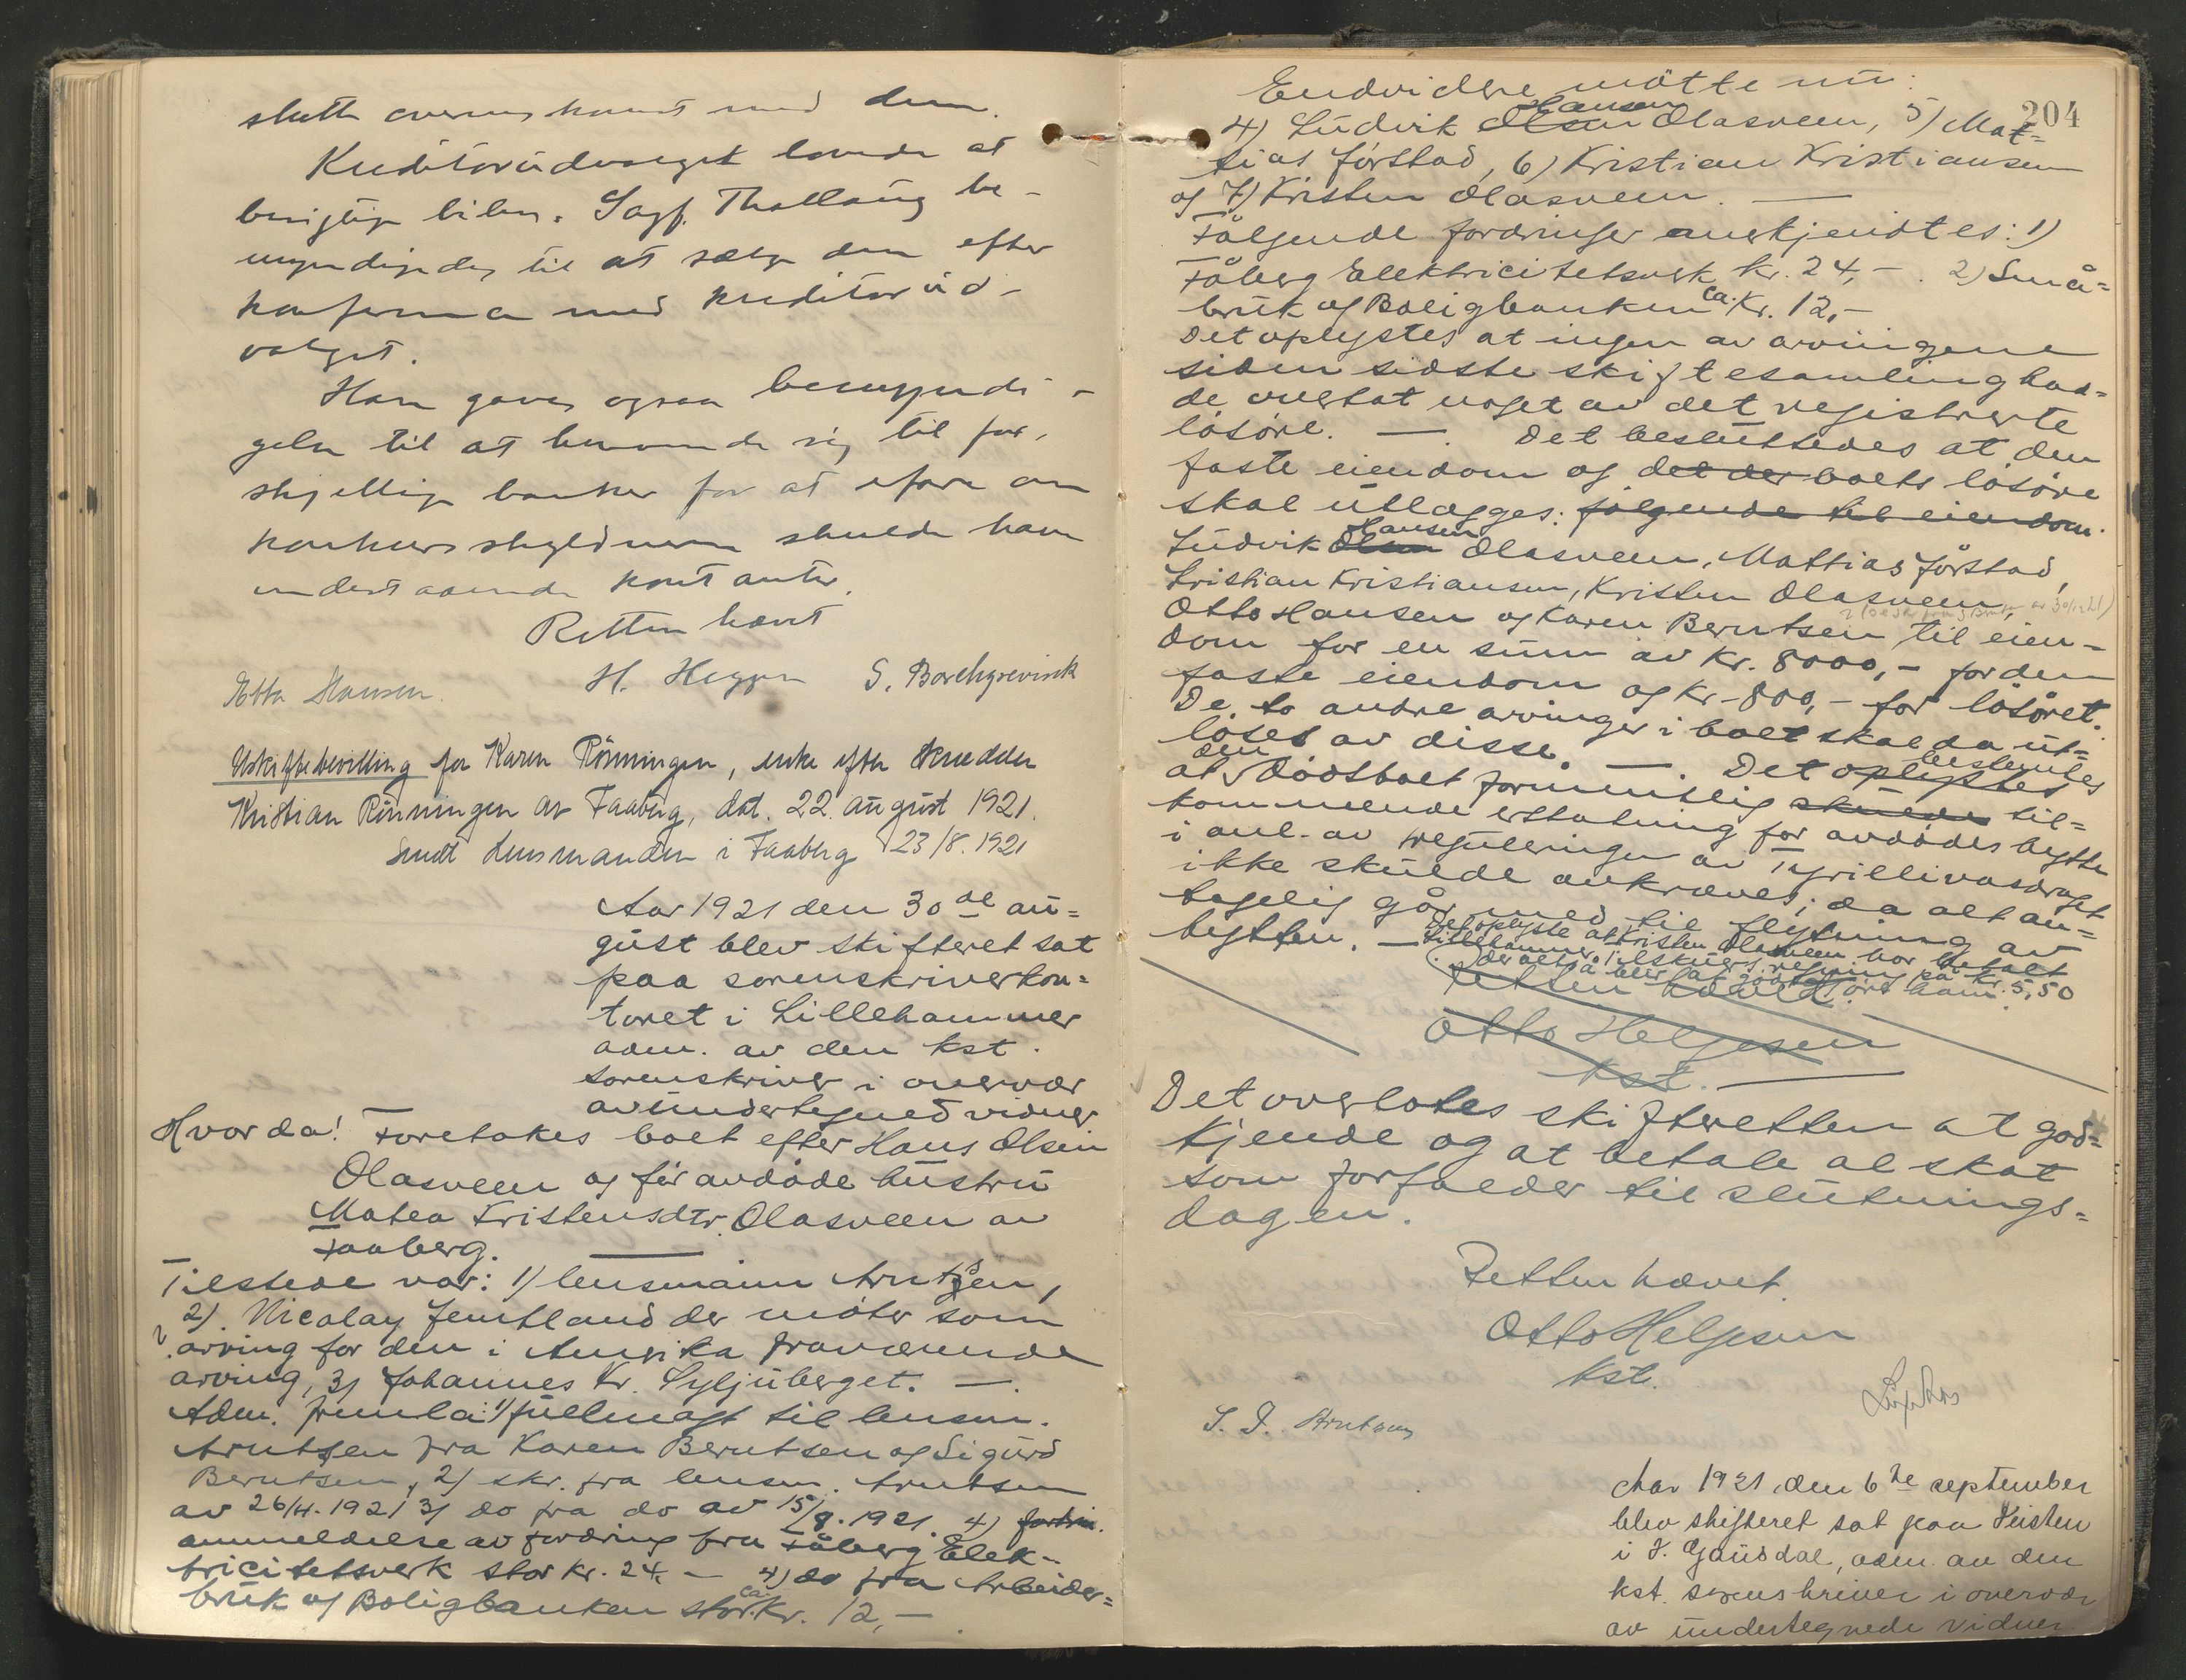 slutte overenskomst med dem.
Kreditorudvalget lovede at
besigtige bilen. Sagf. Thallaug be-
myndigedes til at sælge den efter
konferanse med kreditorud-
valget.
Han gaves ogsaa bemyndi-
gelse til at henvende sig til for-
skjellige banker for at erfare om
konkursskyldneren skulde have
indestaaende kontanter.
Retten hævet
H. Heggen S. Borchgrevink
Otto Hansen.
Uskiftebevilling for Karen Rönningen, enke efter skrædder
Kristian Rönningen av Faaberg, dat. 22. august 1921.
Sendt Lensmanden i Faaberg 23/8. 1921
Aar 1921 den 30 de au=
gust blev skifteret sat
paa sorenskriverkon=
toret i Lillehammer
adm. av den kst.
sorenskriver i overvær
av undertegned vidner
Hvorda! Foretokes boet efter Hans Olsen
Olasveen og før avdøde hustru
Matea Kristensdtr. Olasveen av
Faaberg.
Tilstede var: 1) lensmann Arntzen,
2). Nicolay Jemtland der møter som
arving for den i Amerika fraværende
arving, 3) Johannes Kr. Syljuberget. —.
Adm. fremla: 1) fullmagt til lensm.
Arntsen fra Karen Berntsen og Sigurd
Berntsen, 2) skr. fra lensm. Arntsen
av 26/4. 1921 3) do fra do av 15/8. 1921. 4)
anmeldelse av fordring fra Fåberg Elek-
tricitetsverk stor kr. 24,— 4) do fra Arbeider=
bruk og Boligbanken stor ca. kr. 12,—
204
Endvidere møtte nu:
4) Ludvik Olsen Hansen Olasveen, 5) Mat=
tias Jörstad, 6) Kristian Kristiansen
og 7) Kristen Olasveen. —
Følgende fordringer anerkjendtes: 1)
Fåberg Elektricitetsverk kr. 24,—. 2) Små=
bruk og Boligbanken ca. kr. 12,—
Det oplystes at ingen av arvingene
siden sidste skiftesamling had=
de overtat noget av det registrerte
løsøre. —. Det besluttedes at den
faste eiendom og det der boets løsøre
skal utlægges: følgende til eiendom.
Ludvik Olsen Hansen Olasveen, Mattias Jörstad,
Kristian Kristiansen, Kristen Olasveen,
Otto Hansen og Karen Berntsen til eien-
dom for en sum av kr. 8000,- for den
faste eiendom og kr. 800,- for løsøret.
De to andre arvinger i boet skal da ut=
løses av disse. —. Det oplystes bestemtes
at den dødsboet formentlig skulde til=
kommende erstatning for avdødes hytte
i anl. av reguleringen av Tyrillivasdraget
ikke skulde avkræves, da alt an=
tagelig går med til flytning av
hytten. — Det oplystes at Kristen Olasveen har betalt
Lillehammer Tilskuers regning på kr. 5,50
der altså blir at godtgjöre ham.
Retten hævet.
Otto Helgesen
kst.
Det overlates skifteretten at god=
kjende og at betale al skat
som forfalder til slutnings=
dagen.
Retten hævet.
Otto Helgesen
kst.
Aar 1921, den 6 te september
blev skifteret sat paa Veisten
i V. Gausdal, adm. av den
kst. sorenskriver i overvær
av undertegnede vidner